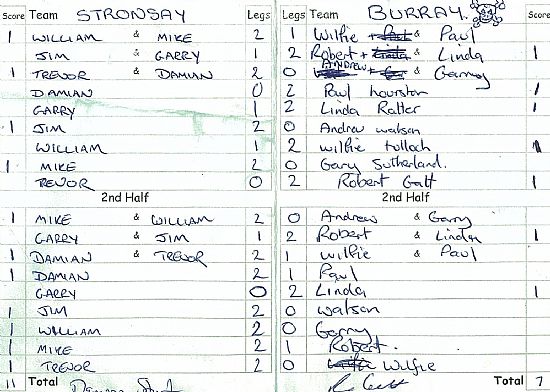 Score Team STRONSAY Legs Legs Team BURRAY. Score
1 WILLIAM & MIKE 2 1 Wilfie & Paul
JIM & GARRY 1 2 Robert + & Linda 1
1 TREVOR & DAMIAN 2 0 ANDREW & Garry
DAMIAN 0 2 Paul hourston 1
GARRY 1 2 Linda Ratter 1
1 JIM 2 0 Andrew watson
WILLIAM 1 2 wilfie tulloch 1
1 MIKE 2 0 Gary Sutherland.
TREVOR 0 2 Robert Galt 1
2nd Half 2nd Half
1 MIKE & WILLIAM 2 0 Andrew & Garry
GARRY & JIM 1 2 Robert & Linda 1
1 DAMIAN & TREVOR 2 1 wilfie & Paul
1 DAMIAN 2 1 Paul
GARRY 0 2 Linda 1
1 JIM 2 0 watson
1 WILLIAM 2 0 Garry
1 MIKE 2 1 Robert.
1 TREVOR 2 0 Wilfie
11 Total Total 7